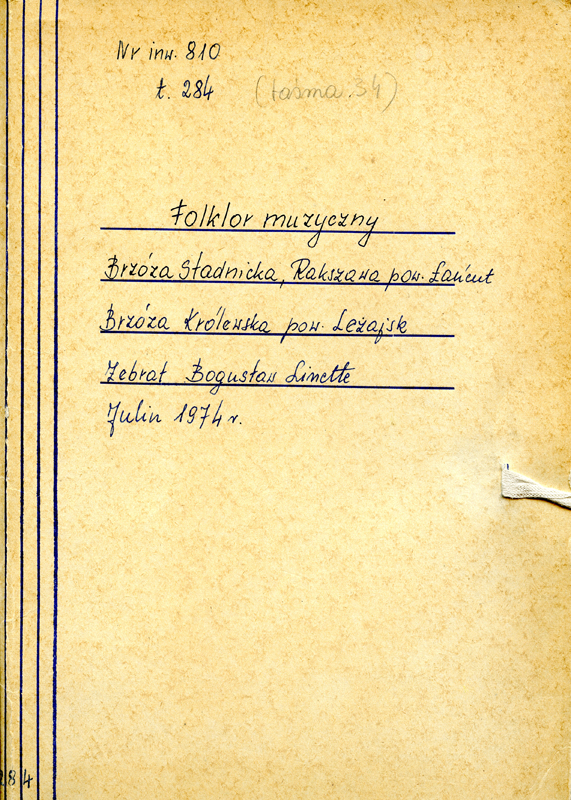 Nr inw. 810
t. 284 (taśma 34)
Folklor muzyczny
Brzóza Stadnicka, Rakszawa pow. Łańcut
Brzóza Królewska pow. Leżajsk
Zebrał Bogusław Linette
Julin 1974 r.
284